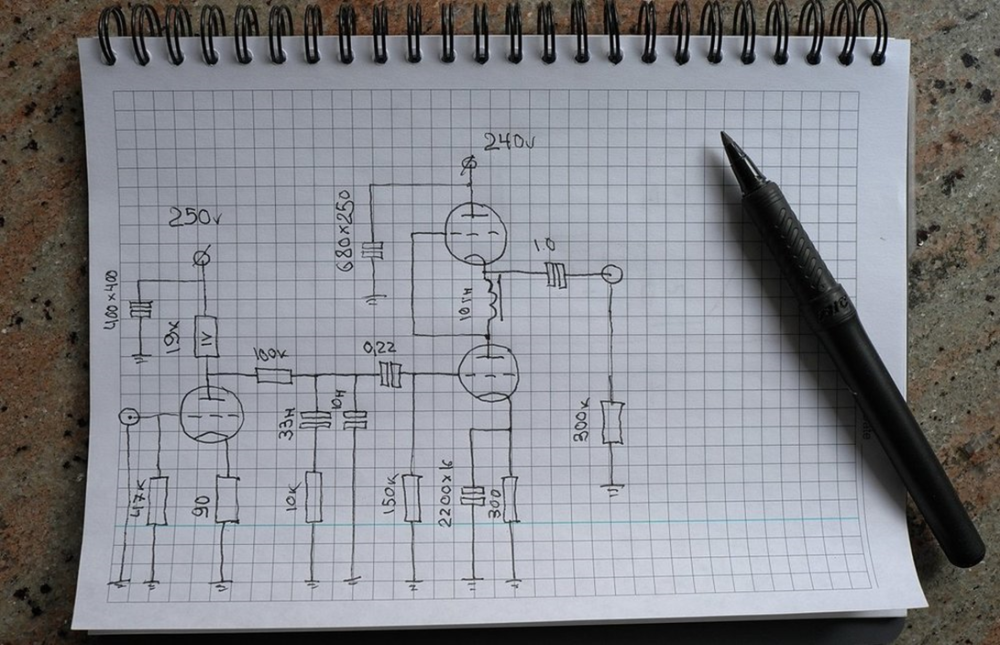 240v
250v
680x250
1.0
400x400
19к
1V
10гн
100к
0,22
33н
10н
300к
47к
90
10к
150к
2200x16
300